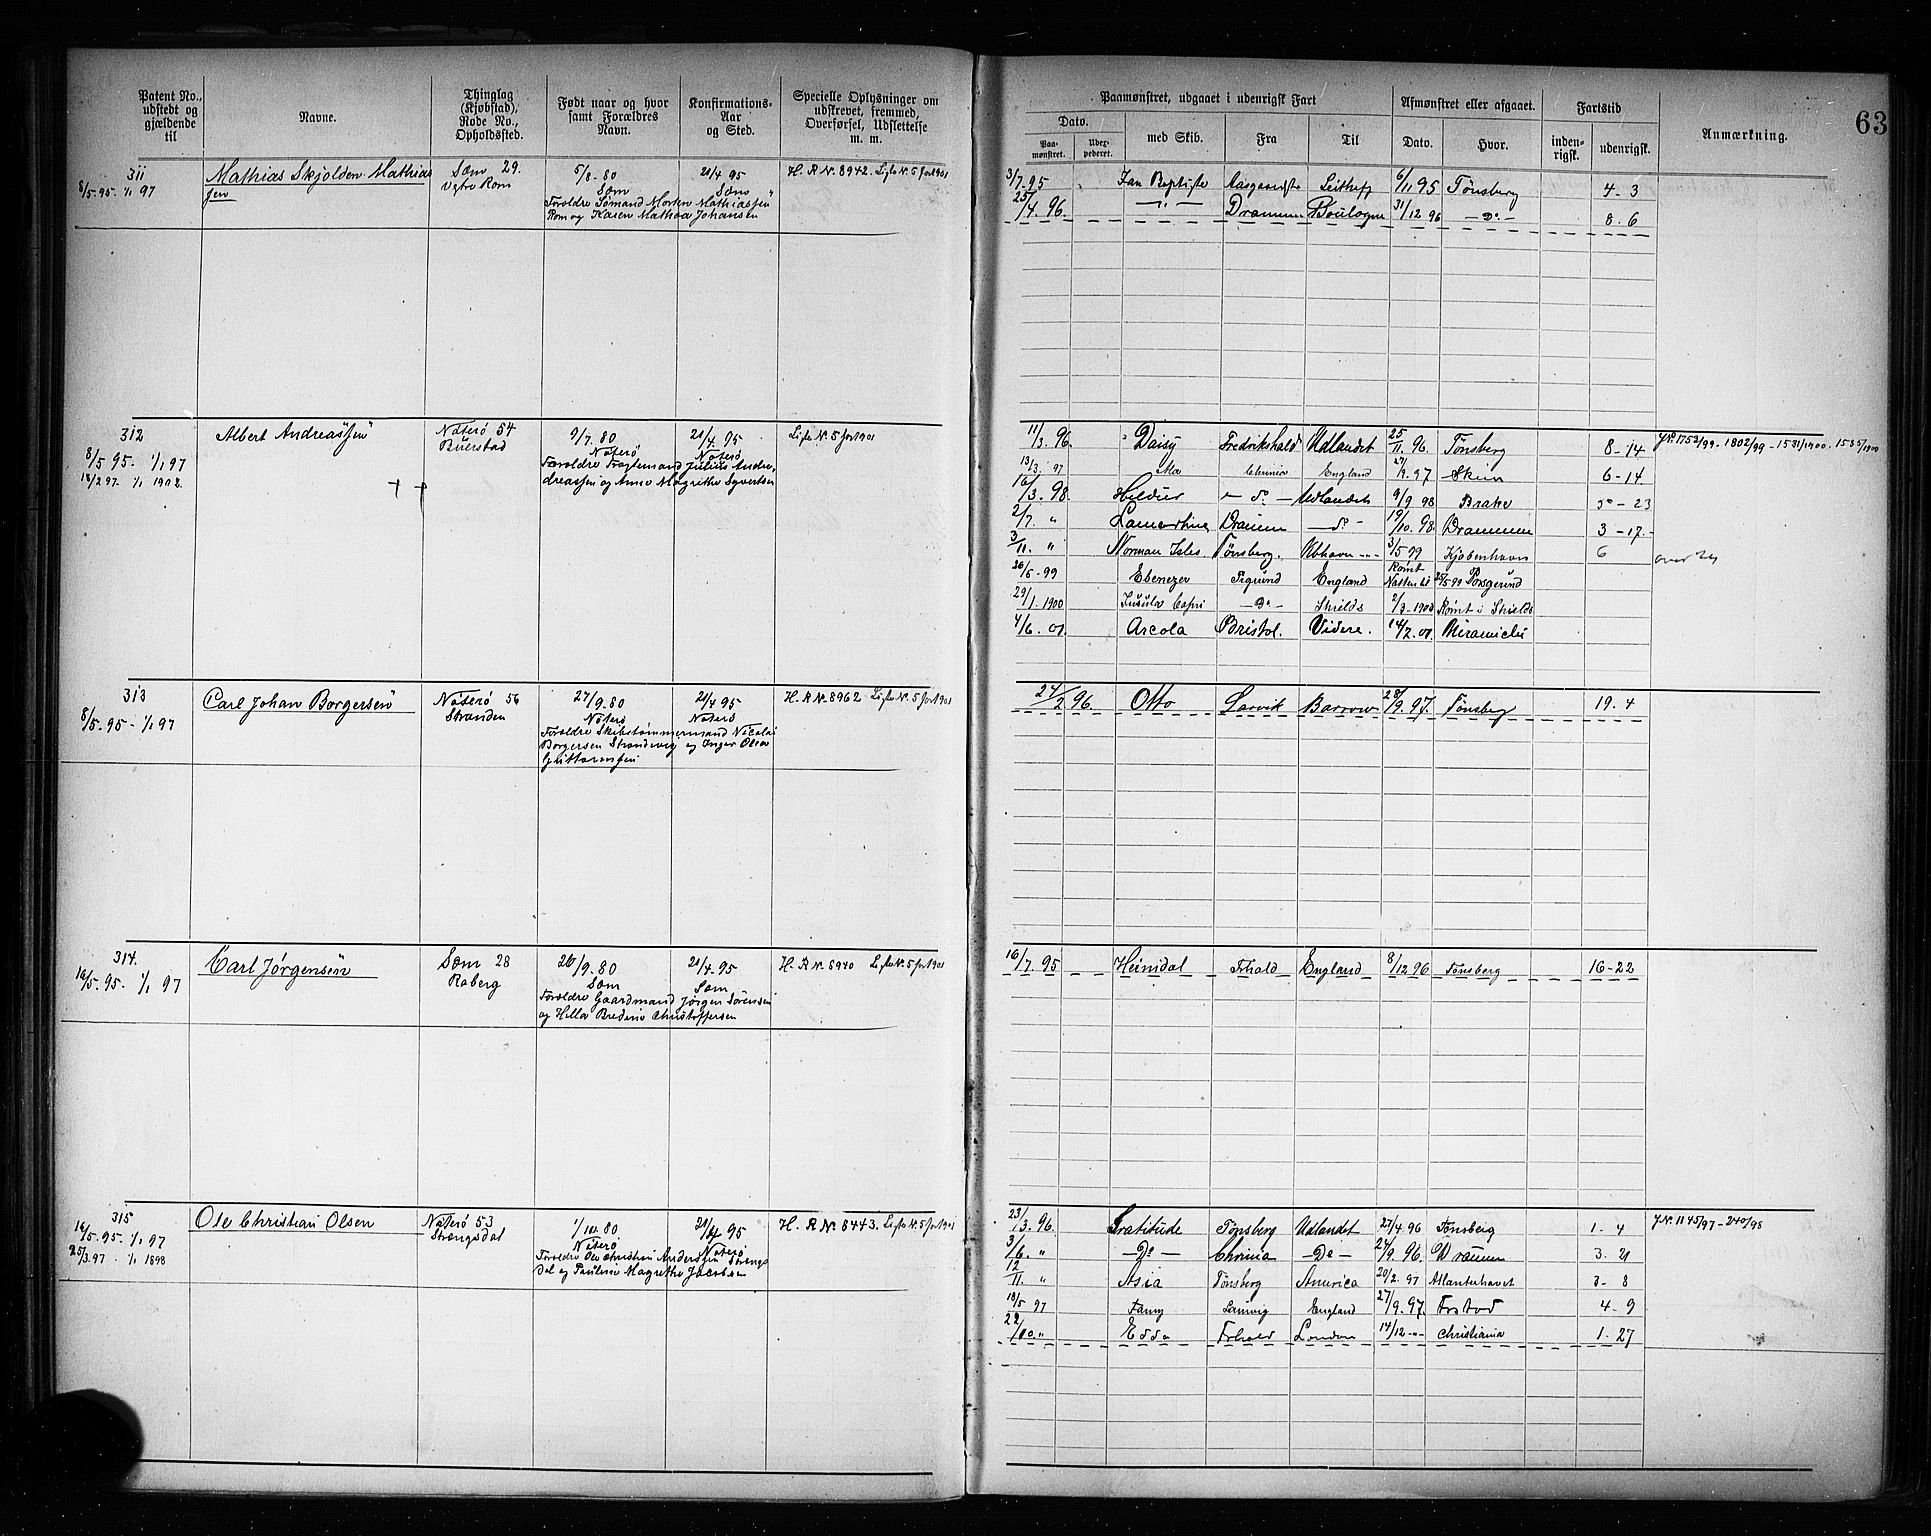 63
Patent No., udstedt og gjældende til
Navne.
Thinglag (Kjøbstad), Rode No., Opholdssted.
Født naar og hvor samt Forældres Navn.
Konfirmations-Aar og Sted.
Specielle Oplysninger om udskrevet, fremmed, Overførsel, Udslettelse m. m.
Paamønstret, udgaaet i udenrigsk Fart
Afmønstret eller afgaaet.
Fartstid
Anmærkning.
Dato.
med Skib.
Fra
Til
Dato.
Hvor.
inden-rigsk.
udenrigsk.
Paa-mønstret.
311
8/5. 95. 1/1 97
Mathias Skjolden Mathias
sen
Sæm 29.
5/8. 80
Sæm
Forældre Sømand Morten Mathiassen
Rom og Karen Mathea Johansen
21/4 95
Sæm
H. R Nr. 8942. Liste Nr. 5 for 1901
3/7. 95 Jan Baptiste Leith 6/11 95 Tønsberg 4 - 3
25/4. 96. — " — Drammen Boulogne 31/12 96 — Do — 8. 6
312
8/5 95. 1/1 97
1/1 1902.
Albert Andreassen
Nøterø 54
Buerstad
9/7. 80
Nøterø
21/4. 95
Nøterø
Forældre Fragtemand Julius Andre-
dreassen og Anne Magrethe Syvertsen
Liste Nr. 5 for 1901
11/3. 96. Daisy Fredrikshald Udlandet 25/11. 96. Tønsberg 8 - 14
J.No. 1753/99 - 1802/99 - 1531/1900 - 1535/1900
13/3. 97 Chrania England 27/9. 97 Skien 6 - 14
16/3. 98. — do — Udlandet 9/9 98 Brake 5 - 23
2/7. " Lamartine Drammen — do — 19/10. 98. Drammen 3 - 17 -
3/11. " Norman Isles Tønsberg. Kbhavn 3/5 99 Kjøbenhavn 6
26/5 - 99 Ebenezer England Rømt 25/5 99 Porsgrund
29/1. 1900 Insula Capri — Do — Shields 2/3 - 1900 Rømt i Shields
4/6. 01 Arcola Bristol. Videre. 14/2. 01. Miramichi
313
8/5. 95 - 1/1 97
Carl Johan Borgersen
Nøterø 56
Stranden
27/9. 80
Nøterø
21/4 95
Nøterø
Forældre Skibstømmermand Nicolai
Borgersen Strandvig og Inger Olea
H. R Nr 8962 - Liste Nr. 5 for 1901
24/2 96. Otto Larvik Barrow 28/9. 97. Tønsberg 19. 4
314.
16/5. 95. 1/1 97
Carl Jørgensen
Sæm 28
Raberg
26/9. 80
Sæm
21/4. 95
Sæm
Forældre Gaardmand Jørgen Sørensen
og Hella Bredine Christoffersen
H. R Nr. 8940 Liste Nr. 5 for 1901
16/7. 95 Heimdal Frhald England 8/12 96 Tønsberg 16 - 22
315
16/5. 95. 1/1. 97
25/3. 97 - 1/1 1898
Ole Christian Olsen
Nøterø 53
Strengsdal
Nøterø
21/4 95
Nøterø
Forældre Ole Christian Anderssen Strengs
dal og Pauline Magrethe Jacobsen
H. R Nr. 8443. Liste Nr. 5 for 1901
23/3. 96. Gratitude Tønsberg Udlandet 27/4. 96 Tønsberg 1 - 4
J.No. 1145/97 - 240/98
3/6. " — Do — Chrania — Do — 24/9. 96. Drammen 3. 21
12/11. " Asia Tønsberg America 20/2. 97 Atlanterhavet 3 - 8
18/5 97 Fanny Laurvig England 27/9. 97. Frstad 4 - 9
22/10. " Edda Frhald London 14/12 — " — Christiania 1 - 27